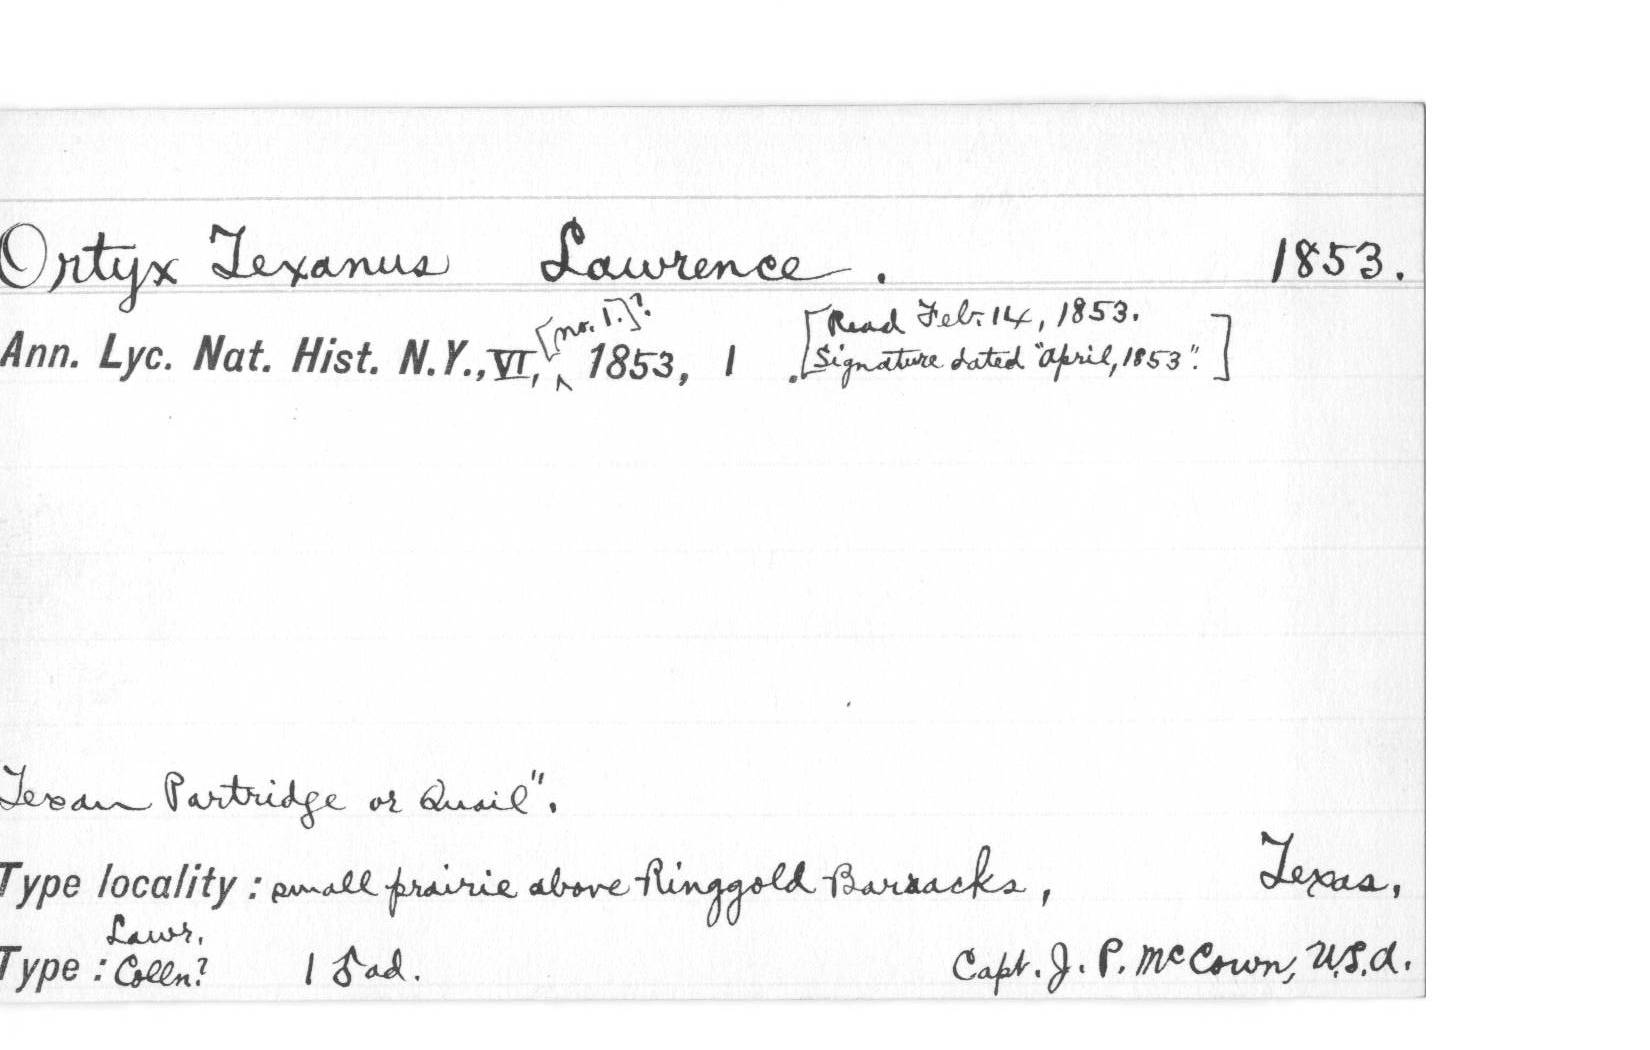 Ortyx Texanus Lawrence. 1853.
Ann. Lyc. Nat. Hist. N.Y., VI, [no. 1.]? 1853, 1. [Read Feb. 14, 1853.
Signature dated "April, 1853".]
Texan Partridge or Quail".
Type locality: small prairie above Ringgold Barracks, Texas,
Lawr.
Type: Colln? 1 ♂ ad. Capt. J. P. McCown, U.S.A.